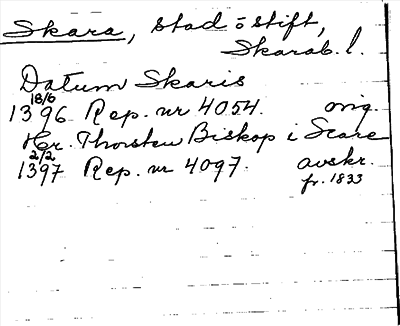 Skara, stad o stift,
Skarab. l.
Datum Skaris
18/6
1396 Rep. nr 4054. orig.
Hr. Thorsten Biskop i Scare
2/2
1397 Rep. nr 4097. avskr.
fr. 1833